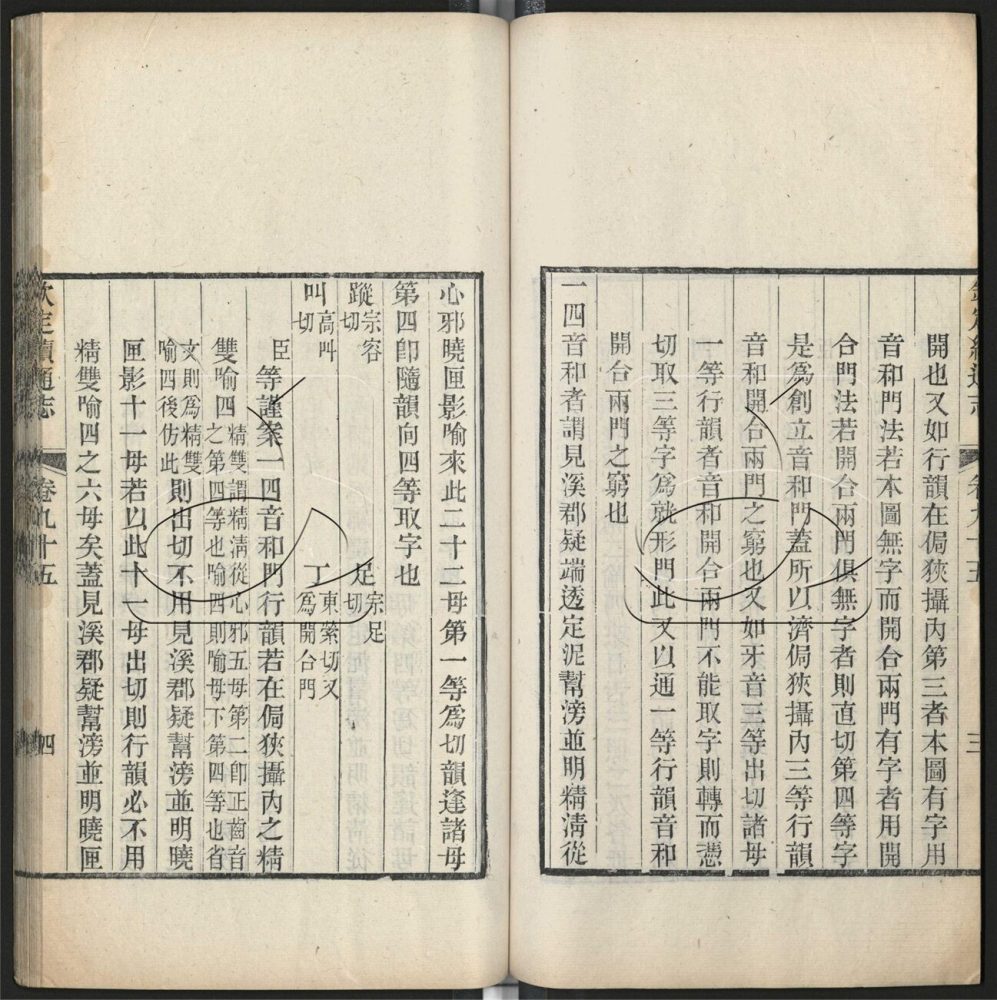 開也又如行韻在侷狹攝內第三者本圖有字用
音和門法若本圖無字而開合兩門有字者用開
合門法若開合兩門俱無字者則直切第四等字
是爲創立音和門蓋所以濟侷狹攝內三等行韻
音和開合兩門之窮也又如牙音三等出切諸母
一等行韻者音和開合兩門不能取字則轉而憑
切取三等字爲就形門此又以通一等行韻音和
開合兩門之窮也
一四音和者謂見溪郡疑端透定泥幫滂並明精清從
心邪曉匣影喻來此二十二母第一等爲切韻逢諸母
第四即隨韻向四等取字也
蹤宗容切 足宗足切
叫高叫切 丁東縈切又爲開合門
臣等謹案一四音和門行韻若在侷狹攝內之精
雙喻四精雙謂精清從心邪五母第二即正齒音之第四等也喻四則喻母下第四等也省
文則爲精雙喻四後仿此則出切不用見溪郡疑幫滂並明曉
匣影十一母若以此十一母出切則行韻必不用
精雙喻四之六母矣蓋見溪郡疑幫滂並明曉匣
欽定續通志 卷九十五 四
三